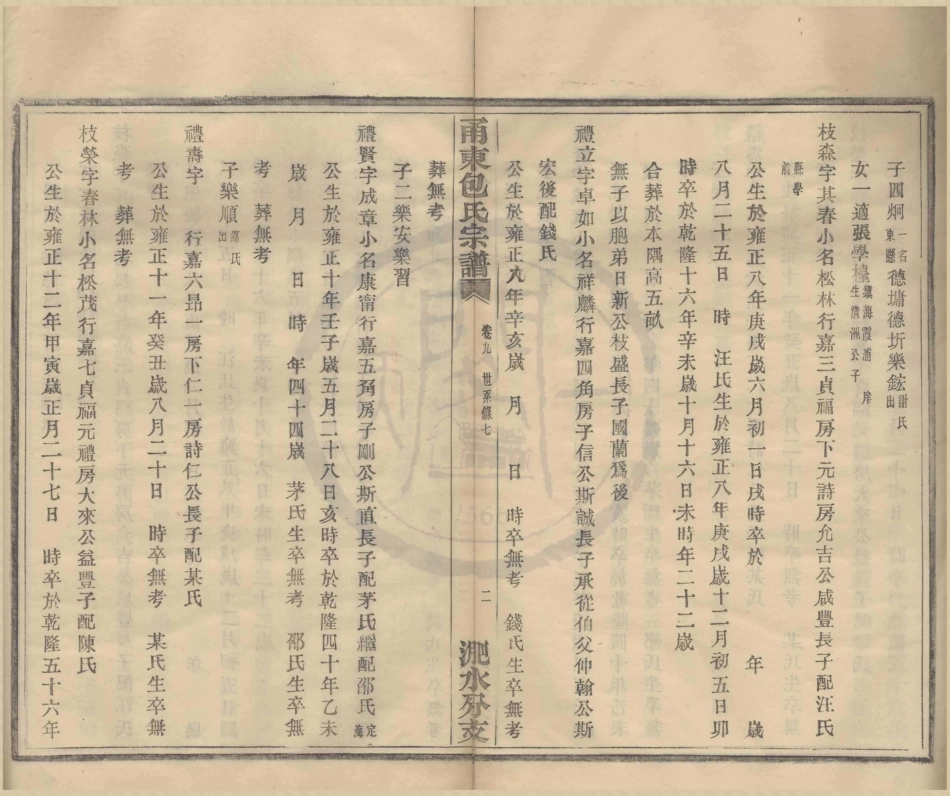 子四炯一名東懸德墉德圻樂鋐謝氏出
女一適張學檯鎮海霞浦庠生濟洲公子
枝森字其春小名松林行嘉三貞福房下元詩房允吉公咸豐長子配汪氏
縣學前
公生於雍正八年庚戌歲六月初一日戌時卒於　年　歲
八月二十五日　時　汪氏生於雍正八年庚戌歲十二月初五日卯
時卒於乾隆十六年辛未歲十月十六日未時年二十二歲
合葬於本隅高五畝
無子以胞弟日新公枝盛長子國蘭爲後
禮立字卓如小名祥麟行嘉四角房子信公斯誠長子承從伯父仲翰公斯
宏後配錢氏
公生於雍正九年辛亥歲　月　日　時卒無考　錢氏生卒無考
甬東包氏宗譜
卷九　世系錄七
二
淝水分支
葬無考
子二樂安樂習
禮賢字成章小名康甯行嘉五角房子剛公斯直長子配茅氏繼配邵氏定海
公生於雍正十年壬子歲五月二十八日亥時卒於乾隆四十年乙未
歲　月　日　時　年四十四歲　茅氏生卒無考　邵氏生卒無
考　葬無考
子樂順邵氏出
禮壽字　行嘉六昻一房下仁一房詩仁公長子配某氏
公生於雍正十一年癸丑歲八月二十日　時卒無考　某氏生卒無
考　葬無考
枝榮字春林小名松茂行嘉七貞福元禮房大來公益豐子配陳氏
公生於雍正十二年甲寅歲正月二十七日　時卒於乾隆五十六年